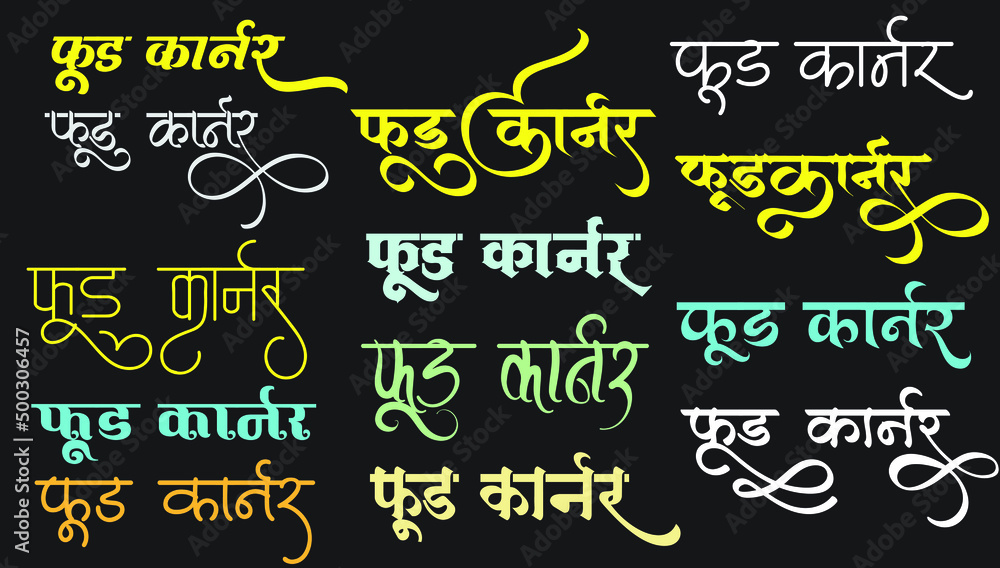 फूड कार्नर
फूड कार्नर
फूड कार्नर
फूड कार्नर
फूड कार्नर
फूड कार्नर
फूड कार्नर
फूड कार्नर
फूड कार्नर
फूड कार्नर
फूडकार्नर
फूड कार्नर
फूड कार्नर
Adobe Stock | #500306457